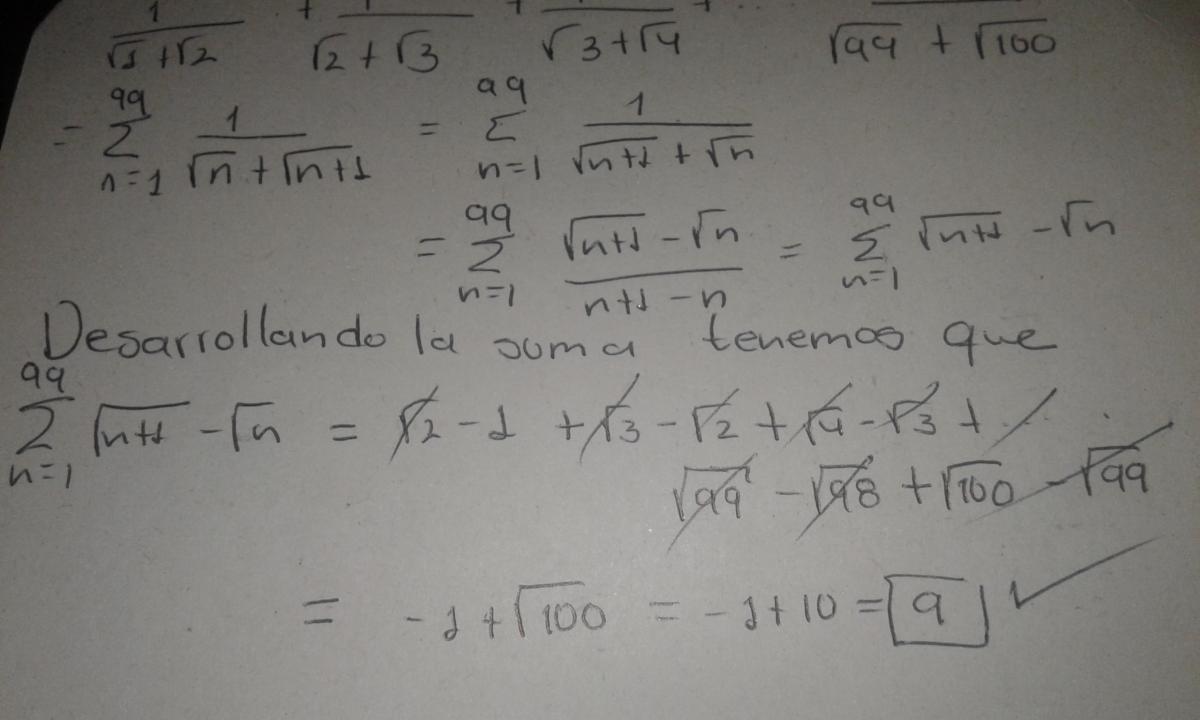 1/(√1+√2) + 1/(√2+√3) + 1/(√3+√4) + ... 1/(√99+√100)
= ∑_{n=1}^{99} 1/(√n+√(n+1)) = ∑_{n=1}^{99} 1/(√(n+1)+√n)
= ∑_{n=1}^{99} (√(n+1)-√n)/(n+1-n) = ∑_{n=1}^{99} √(n+1)-√n
Desarrollando la suma tenemos que
∑_{n=1}^{99} √(n+1)-√n = √2-1+√3-√2+√4-√3+
√99-√98+√100-√99
= -1+√100 = -1+10 = 9 ✓